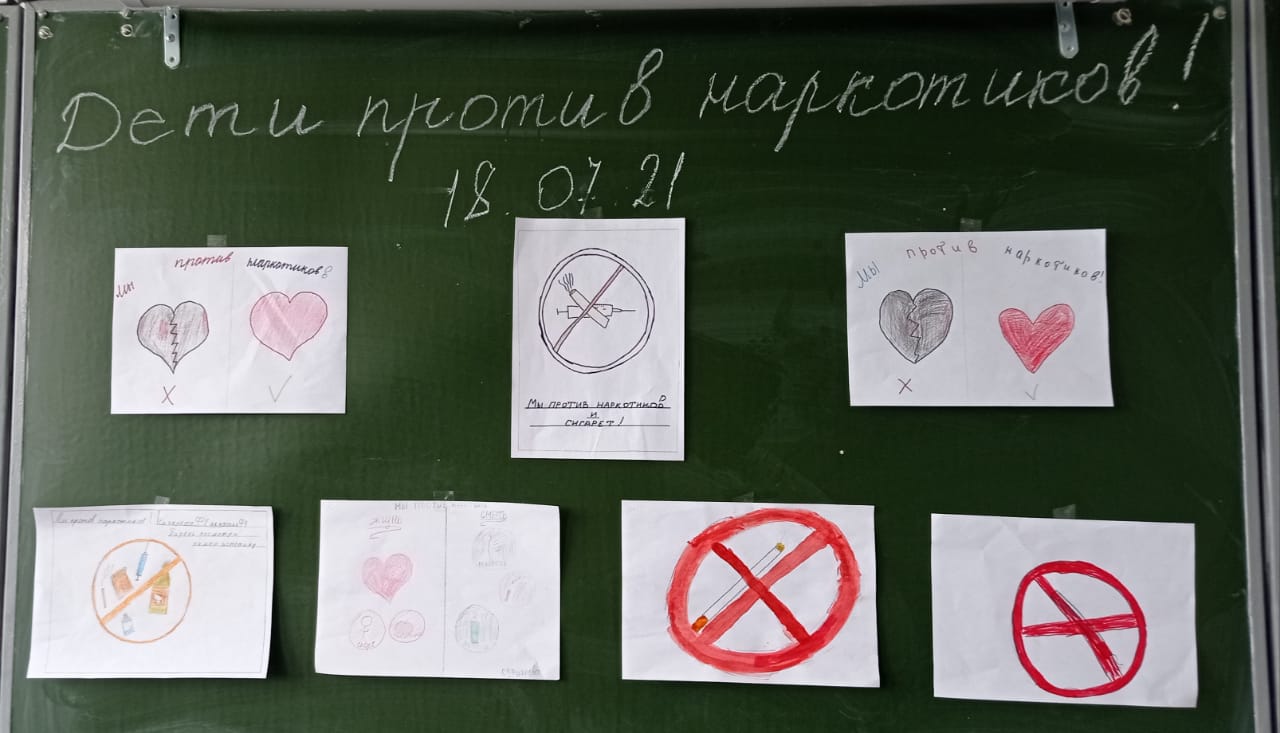 Дети против наркотиков!
18.07.21
Мы против наркотиков
X
Мы против наркотиков!
X
Мы против наркотиков
и
сигарет!
Мы против наркотиков
Мы против
жизнь
смерть